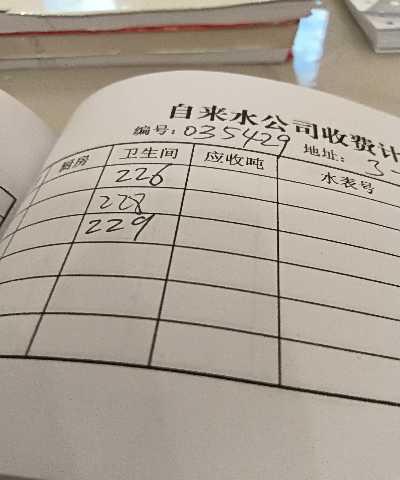 自来水公司收费计
编号: 035429 地址: 3-
厨房 卫生间 应收吨 水表号
226
228
229